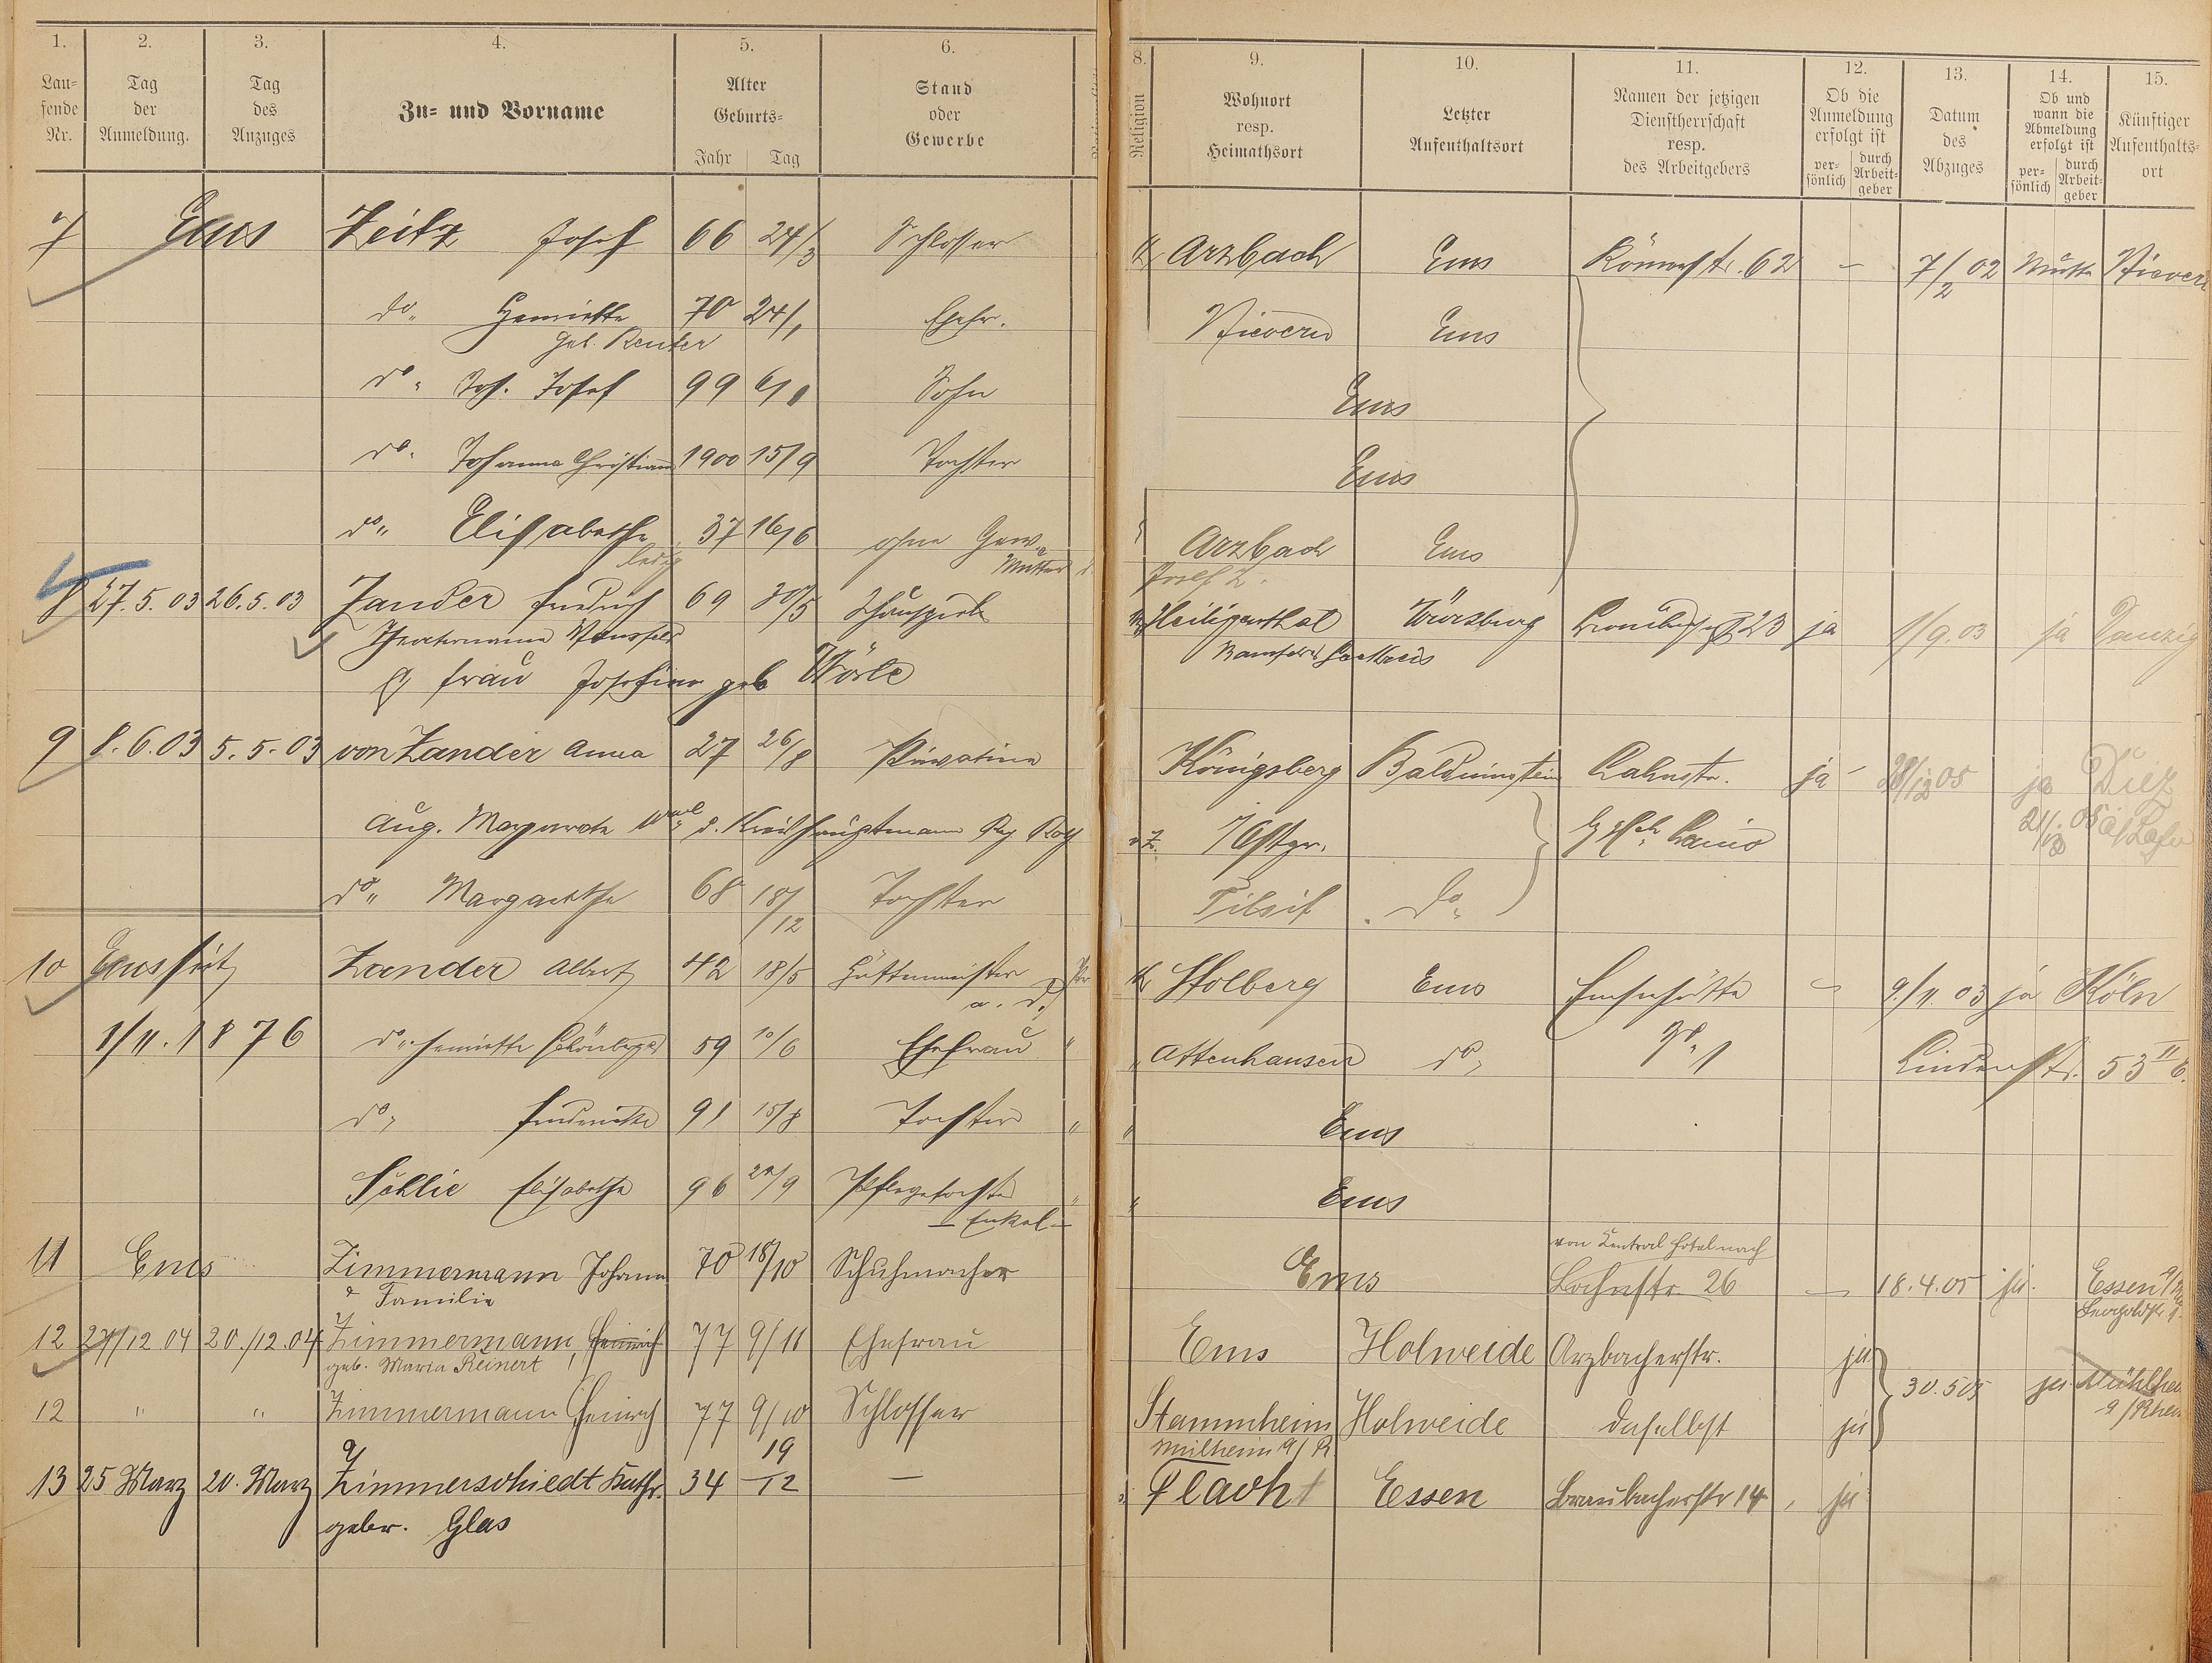 1. 2. 3. 4. 5. 6. 8. 9. 10. 11. 12. 13. 14. 15.
Lau-
fende
Nr.
Tag
der
Anmeldung.
Tag
des
Anzuges
Zu- und Vorname
Alter
Geburts-
Jahr Tag
Stand
oder
Gewerbe
Religion
Wohnort
resp.
Heimathsort
Letzter
Aufenthaltsort
Namen der jetzigen
Dienstherrschaft
resp.
des Arbeitgebers
Ob die
Anmeldung
erfolgt ist
per-
sönlich
durch
Arbeit-
geber
Datum
des
Abzuges
Ob und
wann die
Abmeldung
erfolgt ist
per-
sönlich
durch
Arbeit-
geber
Künftiger
Aufenthalts-
ort
7 Ems Zeitz Josef 66 24/3 Schlosser Arzbach Ems Römerstr. 62 – 7/2 02 Nievern
do. Henriette 70 24/1 Ehefr. Nievern Ems
geb. Reuter
do. Joh. Josef 99 Sohn Ems
do. Johanna 1900 15/9 Tochter Ems
do. Elisabethe 37 16/6 ohne Gew. Arzbach Ems
ledig Mutter Josef Z.
8 27.5.03 26.5.03 Zander Friedrich 69 30/5 Heiligenthal Würzburg 23 ja 1/9.03 ja Danzig
Frau Josefine geb Wörle
9 8.6.03 5.5.03 von Zander Anna 27 26/8 Privatine Königsberg Balduinstein Lahnstr. ja - 28/12 05 ja Diez
Aug. Margarete d. Kreishauptmann
a/Lahn
do. Margarethe 68 18/12 Tochter Tilsit do.
10 Ems seit Zander Albert 42 18/5 Hüttenmeister Stolberg Ems Emserhütte 9/11.03 ja Köln
a. D.
1/11.1876 do. Henriette 59 10/6 Ehefrau " " Attenhausen do. do. Lindenstr. 53 II
do. Friederike 91 15/8 Tochter " " Ems
Elisabethe 96 22/9 Pflegetochter " " Ems
– Enkel –
von Central Hotel nach
11 Ems Zimmermann Johann 70 18/10 Schuhmacher Ems Bachstr. 26 – 18.4.05 ja. Essen
& Familie
12 27/12 04 20./12.04 Zimmermann, Heinrich 77 9/11 Ehefrau Ems Holweide Arzbacherstr. ja
geb. Maria Reinert
30.5 05 ja. Mühlheim
a/Rhein
12 " " Zimmermann Heinrich 77 9/10 Schlosser Stammheim Holweide daselbst ja
Mülheim a/R
13 25 März 20. März Zimmerschiedt Kathr. 34 19/12 – Flacht Essen Braubacherstr 14 ja
gebor. Glas